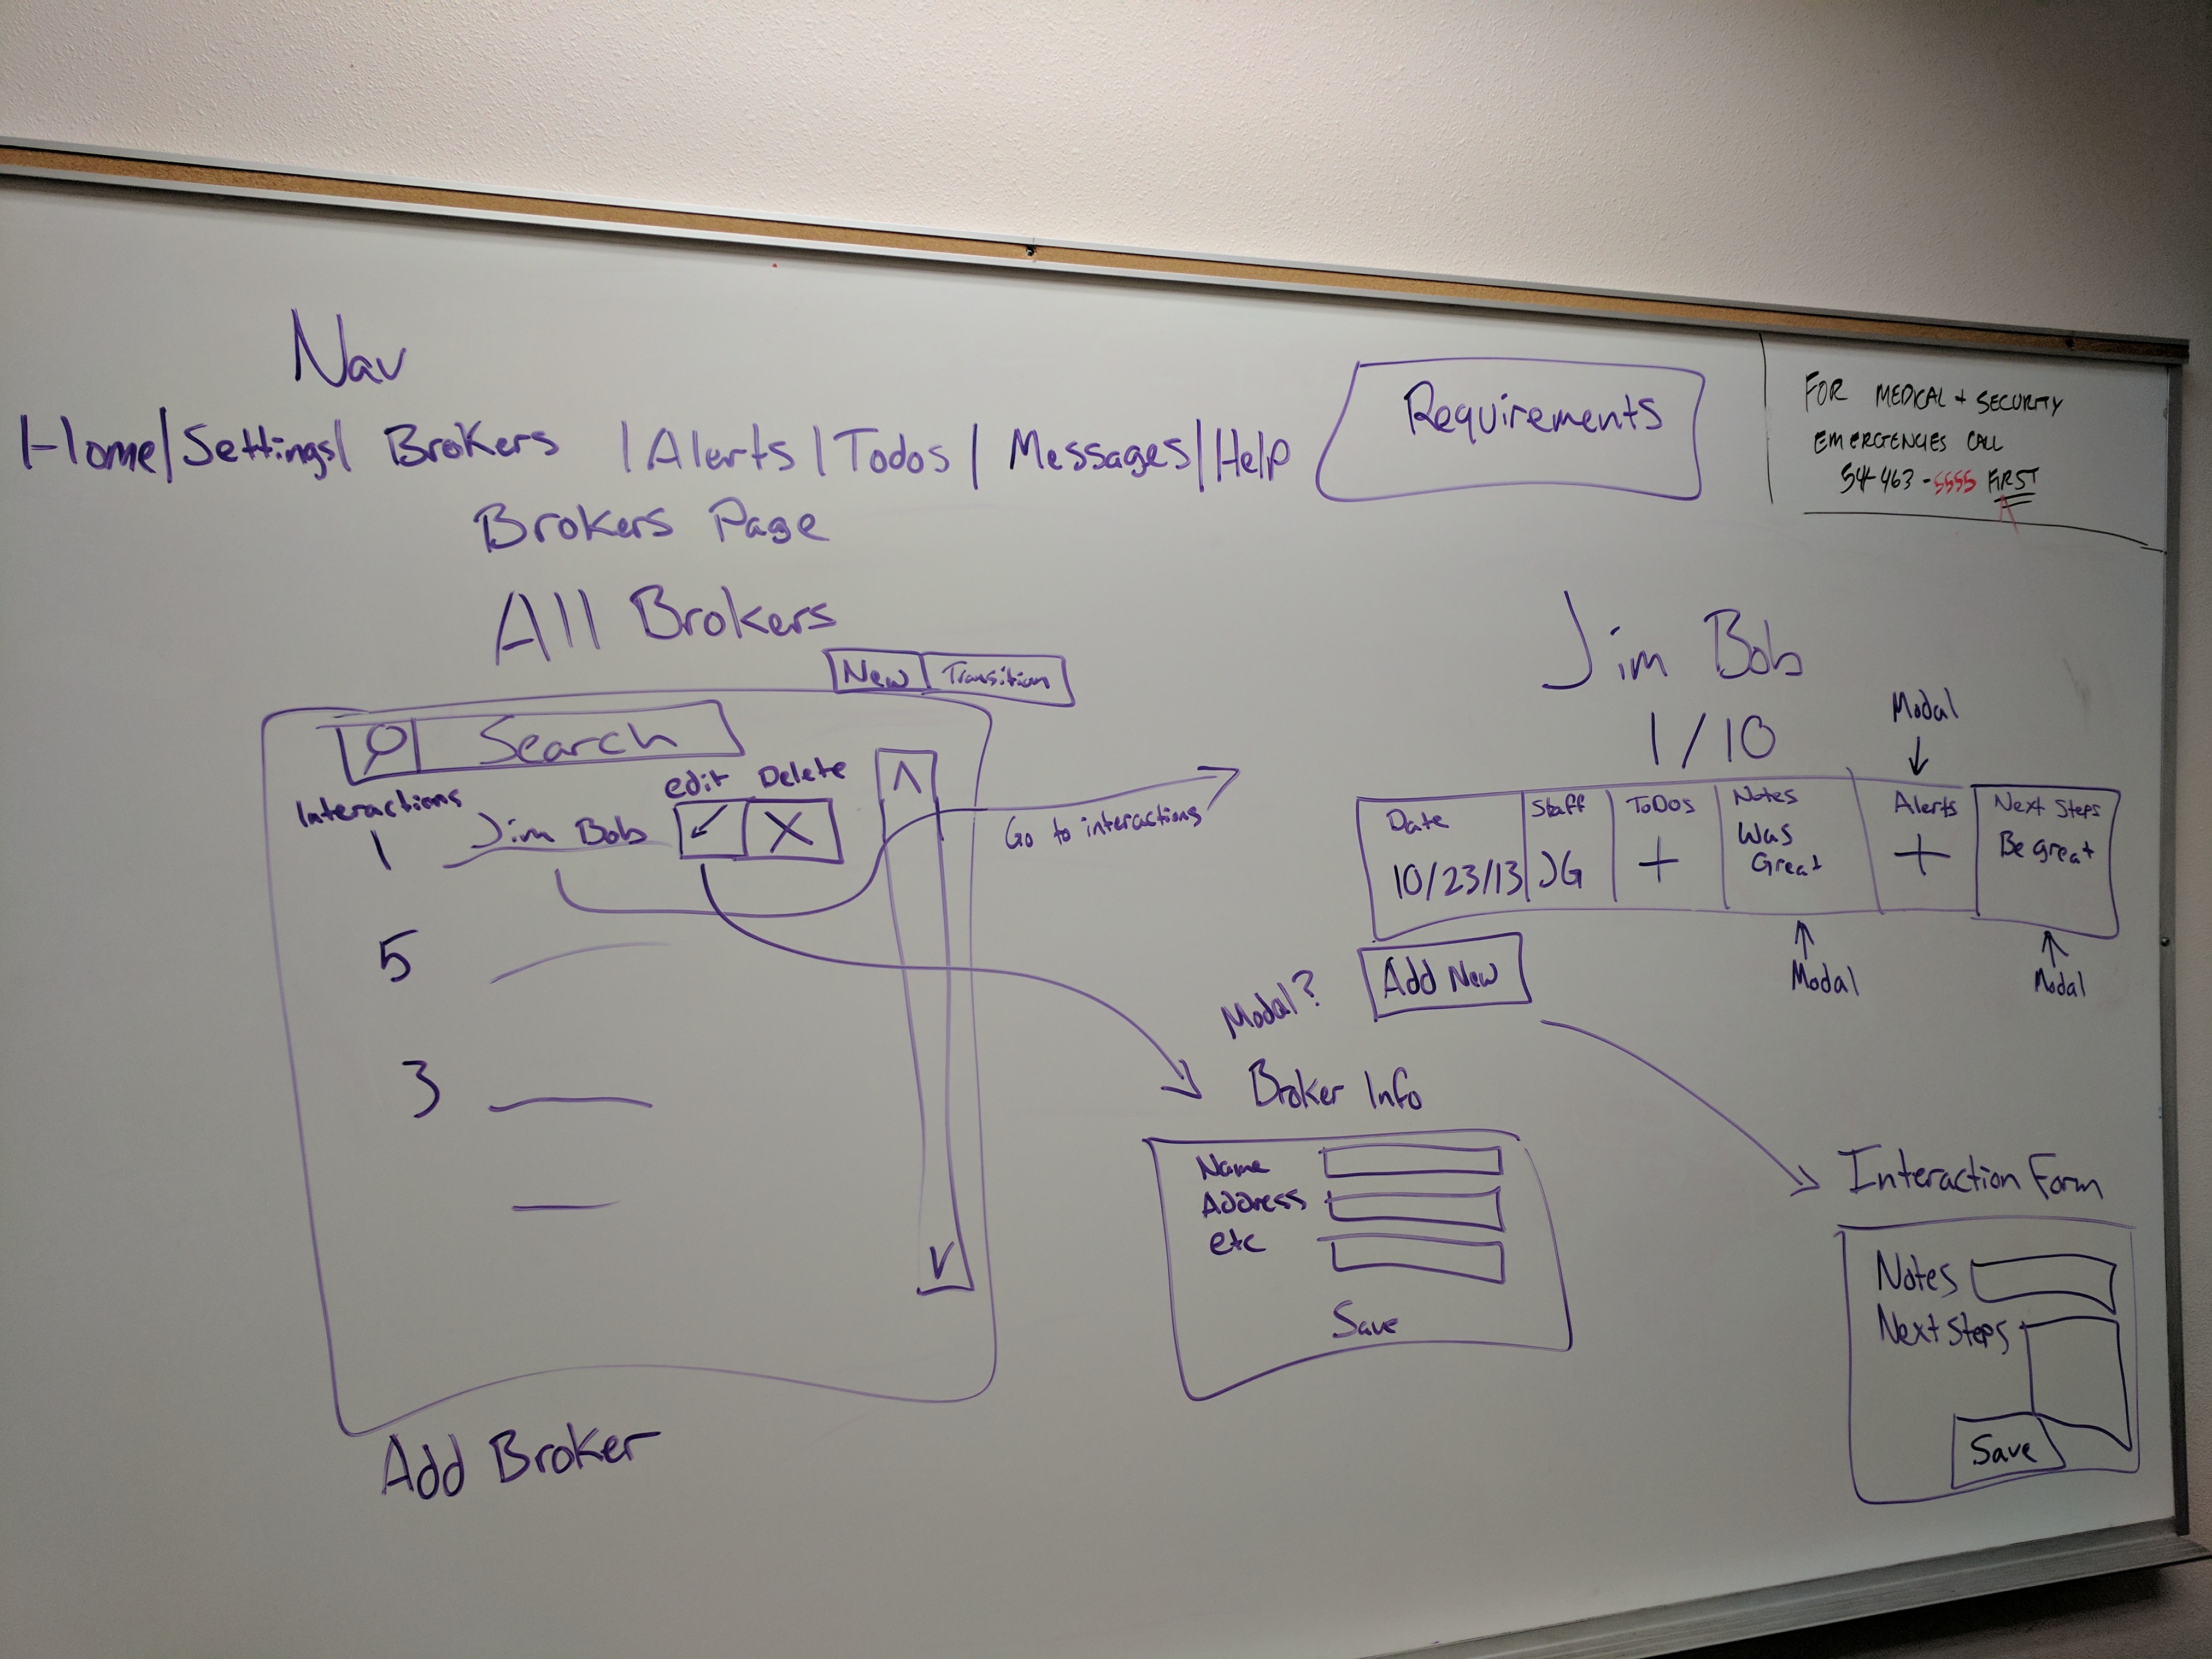 Nav
Home | Settings | Brokers | Alerts | Todos | Messages | Help
Requirements
FOR MEDICAL + SECURITY
EMERGENCIES CALL
54-463-5555 FIRST
Brokers Page
All Brokers
New Transition
Search
edit Delete
Interactions
1 Jim Bob
5
3
Add Broker
Go to interactions
Jim Bob
1/10
Modal
Date Staff ToDos Notes Alerts Next Steps
10/23/13 JG + Was Great + Be great
Modal Modal
Add New
Modal?
Broker Info
Name
Address
etc
Save
Interaction Form
Notes
Next Steps
Save